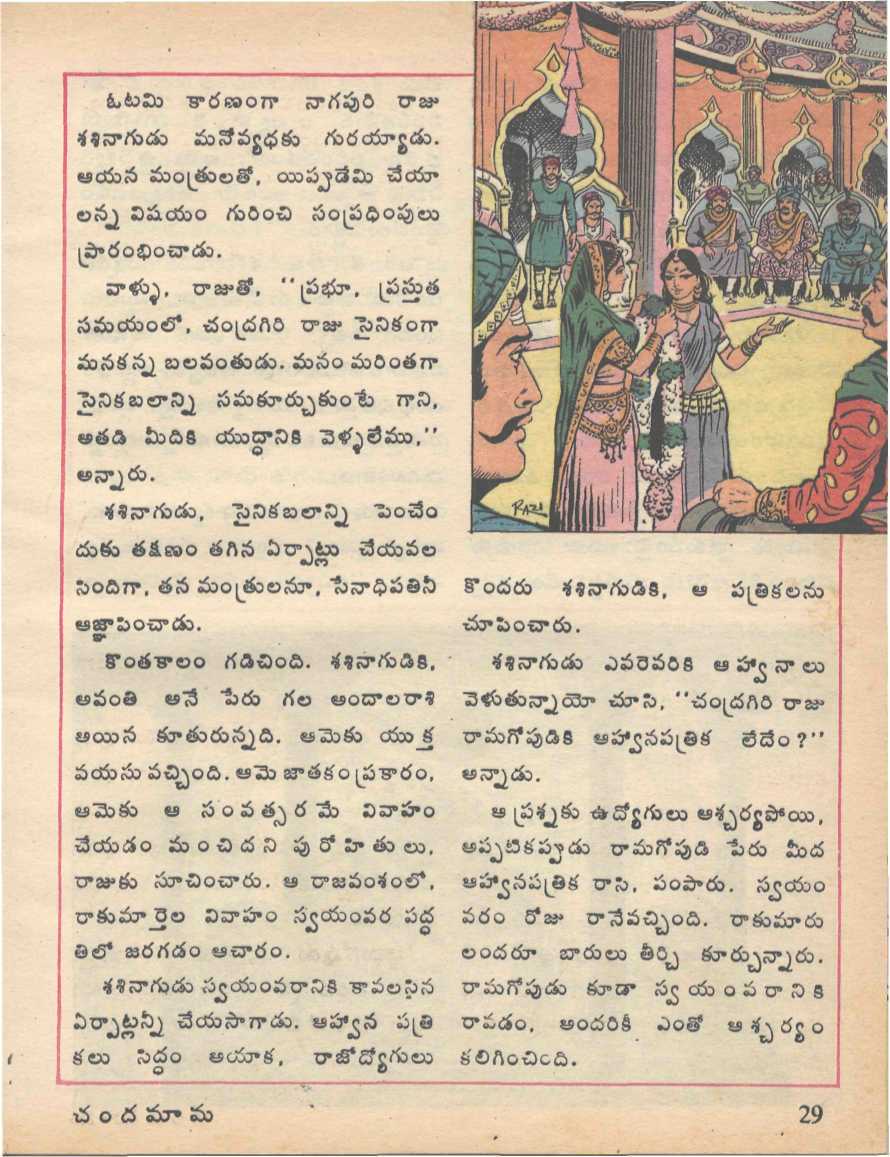 ఓటమి కారణంగా నాగపురి రాజు
శశినాగుడు మనోవ్యధకు గురయ్యాడు.
ఆయన మంత్రులతో, యిప్పుడేమి చేయా
లన్న విషయం గురించి సంప్రధింపులు
ప్రారంభించాడు.
వాళ్ళు, రాజుతో, ‘‘ప్రభూ, ప్రస్తుత
సమయంలో, చంద్రగిరి రాజు సైనికంగా
మనకన్న బలవంతుడు. మనం మరింతగా
సైనికబలాన్ని సమకూర్చుకుంటే గాని,
అతడి మీదికి యుద్ధానికి వెళ్ళలేము,’’
అన్నారు.
శశినాగుడు, సైనికబలాన్ని పెంచేం
దుకు తక్షణం తగిన ఏర్పాట్లు చేయవల
సిందిగా, తన మంత్రులనూ, సేనాధిపతినీ
ఆజ్ఞాపించాడు.
కొంతకాలం గడిచింది. శశినాగుడికి,
అవంతి అనే పేరు గల అందాలరాశి
అయిన కూతురున్నది. ఆమెకు యుక్త
వయసు వచ్చింది. ఆమె జాతకంప్రకారం,
ఆమెకు ఆ సంవత్సరమే వివాహం
చేయడం మంచిదని పురోహితులు,
రాజుకు సూచించారు. ఆ రాజవంశంలో,
రాకుమార్తెల వివాహం స్వయంవర పద్ధ
తిలో జరగడం ఆచారం.
శశినాగుడు స్వయంవరానికి కావలసిన
ఏర్పాట్లన్నీ చేయసాగాడు. ఆహ్వాన పత్రి
కలు సిద్ధం అయాక, రాజోద్యోగులు
RAZI
కొందరు శశినాగుడికి, ఆ పత్రికలను
చూపించారు.
శశినాగుడు ఎవరెవరికి ఆహ్వానాలు
వెళుతున్నాయో చూసి, ‘‘చంద్రగిరి రాజు
రామగోపుడికి ఆహ్వానపత్రిక లేదేం?’’
అన్నాడు.
ఆ ప్రశ్నకు ఉద్యోగులు ఆశ్చర్యపోయి,
అప్పటికప్పుడు రామగోపుడి పేరు మీద
ఆహ్వానపత్రిక రాసి, పంపారు. స్వయం
వరం రోజు రానేవచ్చింది. రాకుమారు
లందరూ బారులు తీర్చి కూర్చున్నారు.
రామగోపుడు కూడా స్వయంపరానికి
రావడం, అందరికీ ఎంతో ఆశ్చర్యం
కలిగించింది.
చందమామ
29